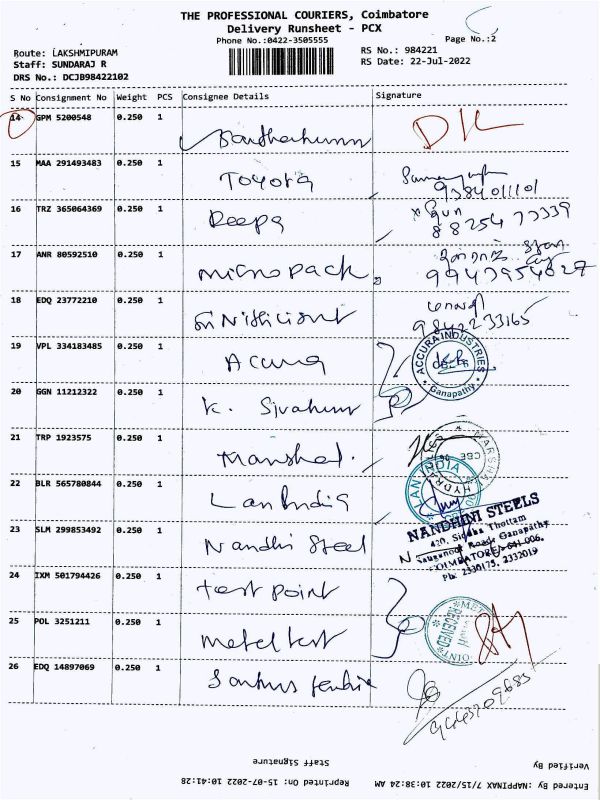 THE PROFESSIONAL COURIERS, Coimbatore
Delivery Runsheet - PCX
Phone No.:0422-3505555
Page No.:2
Route: LAKSHMIPURAM
RS No.: 984221
Staff: SUNDARAJ R
RS Date: 22-Jul-2022
DRS No.: DCJB98422102
S No Consignment No Weight PCS Consignee Details Signature
14 GPM 5200548 0.250 1
15 MAA 291493483 0.250 1 Toyota 9384011101
16 TRZ 365064369 0.250 1 Deepa
17 ANR 80592510 0.250 1 micropack
18 EDQ 23772210 0.250 1 9842233165
19 VPL 334183485 0.250 1 Accura ACCURA INDUSTRIES Ganapathy
20 GGN 11212322 0.250 1 K. Sivakumar
21 TRP 1923575 0.250 1 Marshal.
22 BLR 565780844 0.250 1 Lan India
23 SLM 299853492 0.250 1 Nandhi Steel
NANDHINI STEELS
420, Siddha Thottam
Ganapathy
COIMBATORE-641 006.
Ph: 2330175, 2332019
24 IXM 501794426 0.250 1 test point
25 POL 3251211 0.250 1 metel test RECEIVED
26 EDQ 14897069 0.250 1
Staff Signature
Verified By
Reprinted On: 15-07-2022 10:41:28
Entered By :NAPPINAX 7/15/2022 10:38:24 AM